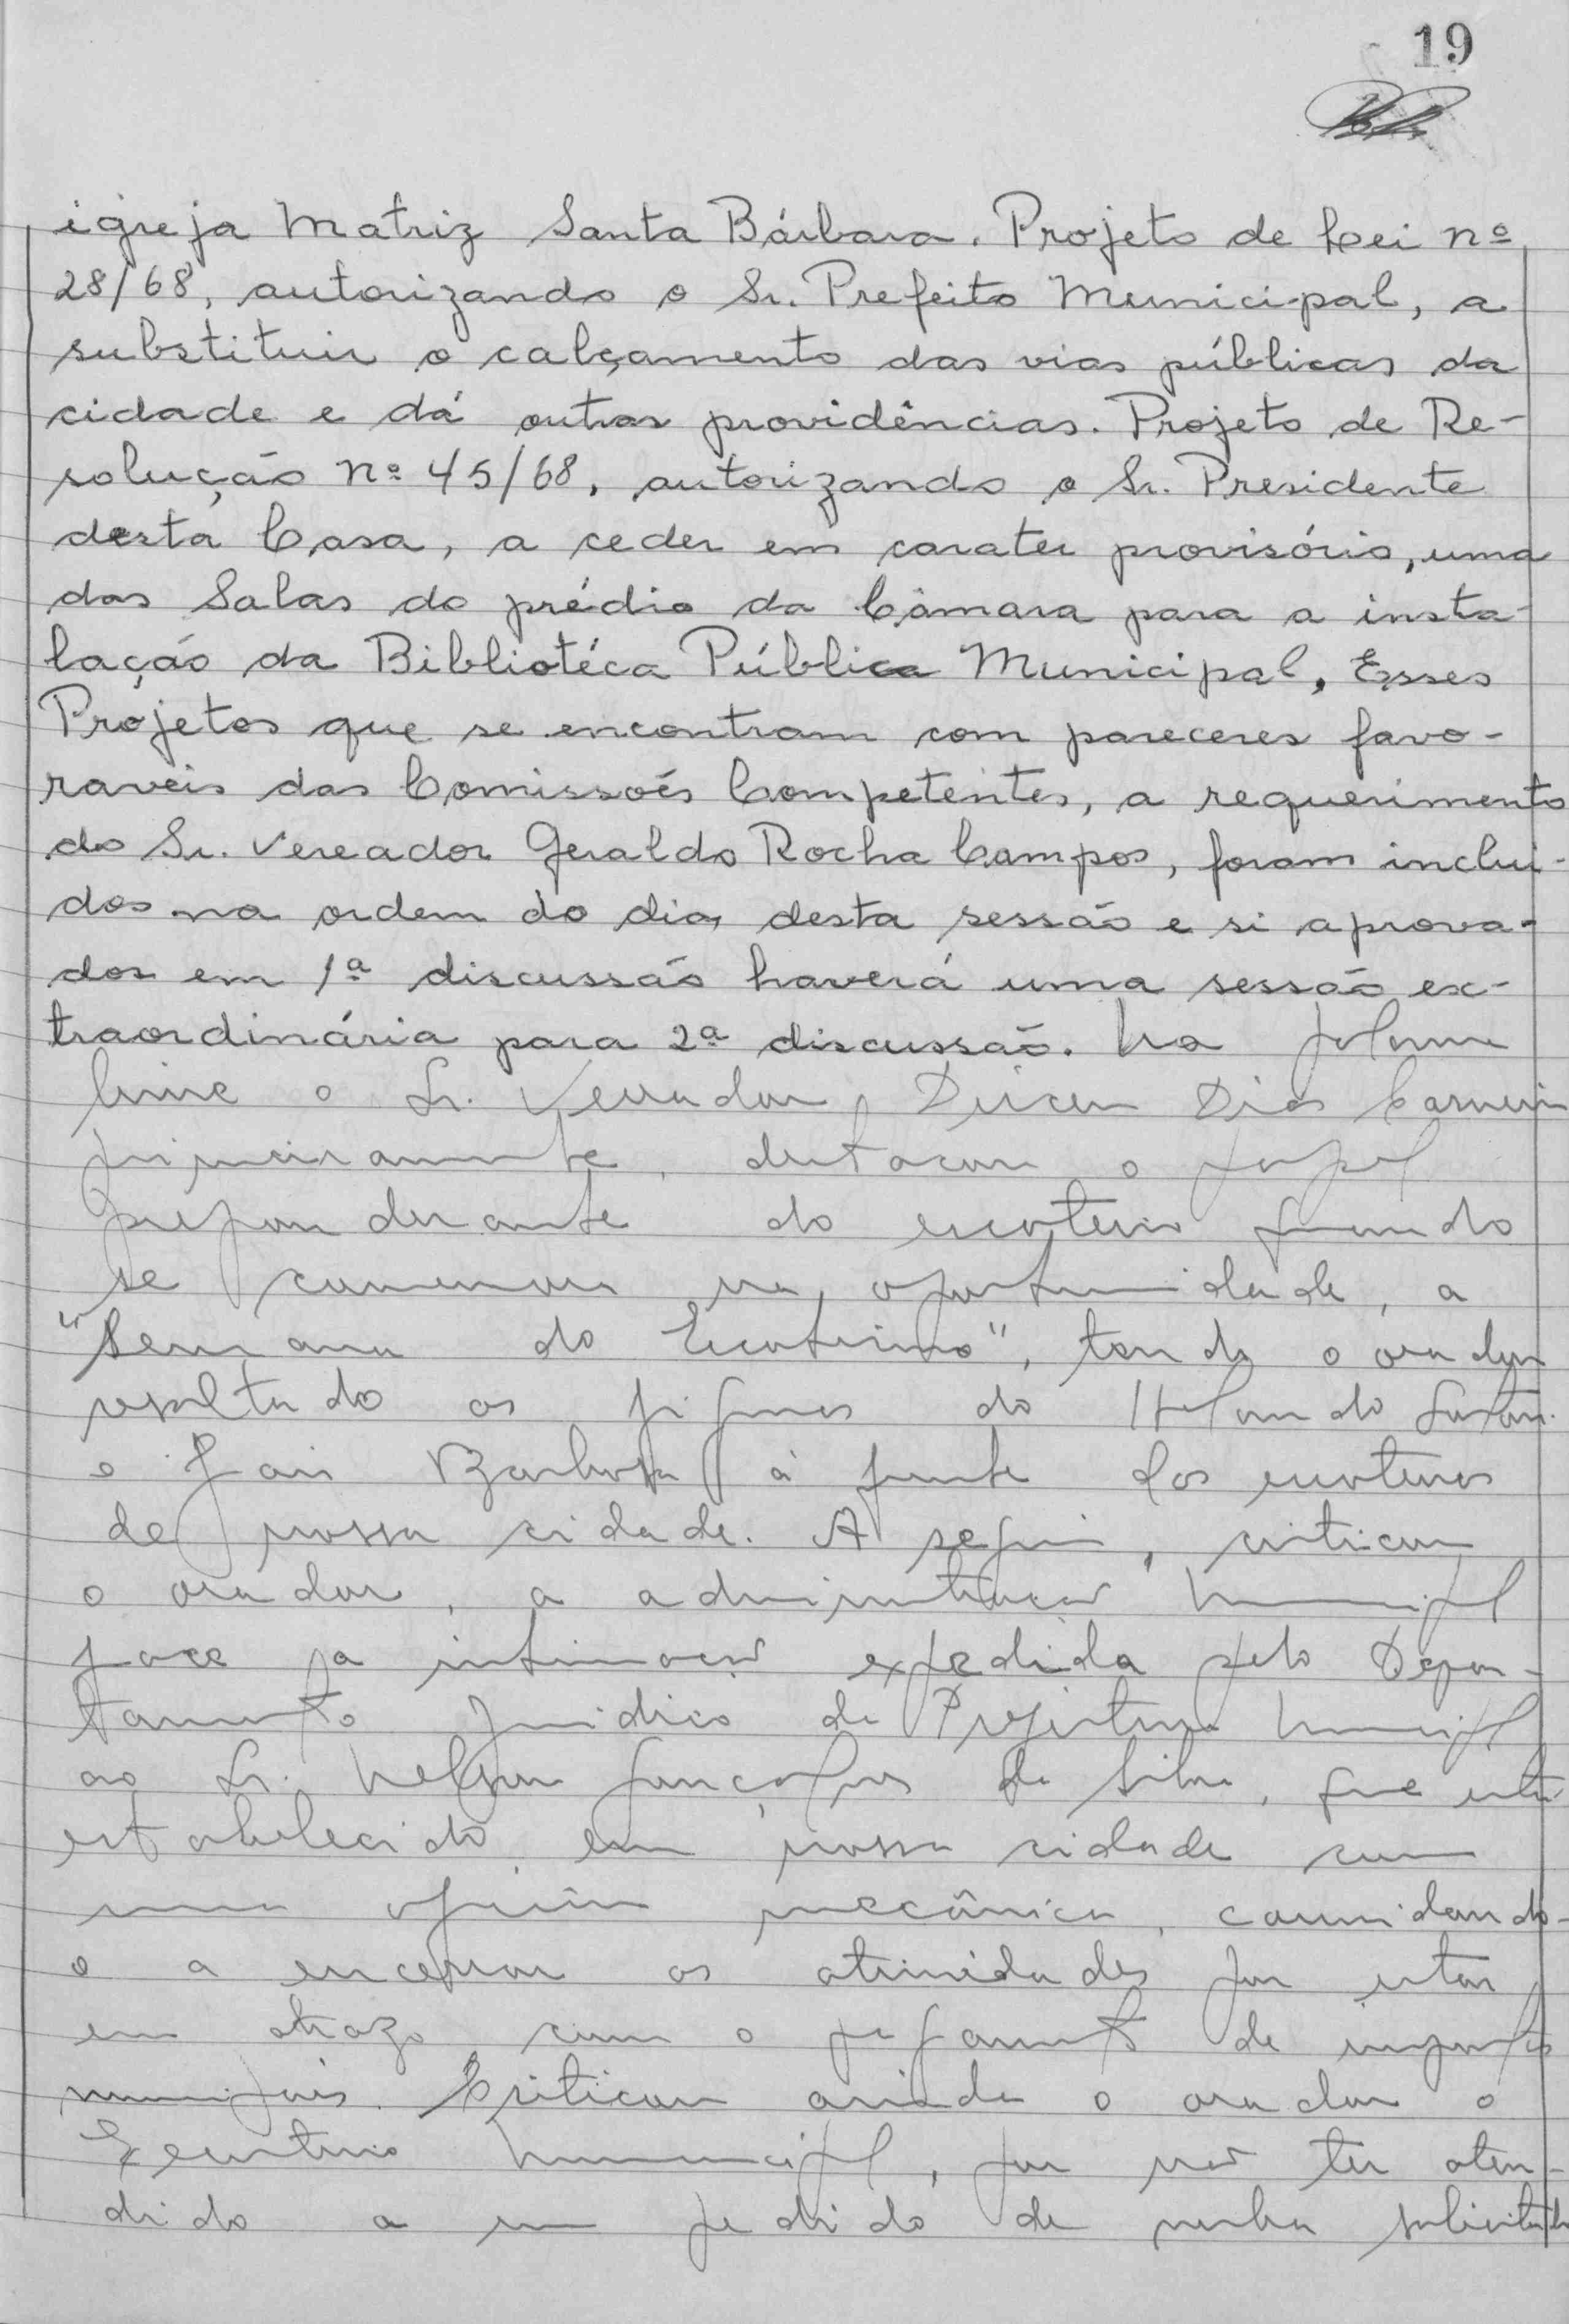 19
igreja Matriz Santa Bárbara. Projeto de Lei nº
28/68, autorizando o Sr. Prefeito Municipal, a
substituir o calçamento das vias públicas da
cidade e dá outras providências. Projeto de Re-
solução nº 45/68, autorizando o Sr. Presidente
desta Casa, a ceder em carater provisório, uma
das Salas do prédio da Câmara para a insta-
lação da Bibliotéca Pública Municipal, Esses
Projetos que se encontram com pareceres favo-
raveis das Comissões Competentes, a requerimento
do Sr. Vereador Geraldo Rocha Campos, foram inclui-
dos na ordem do dia, desta sessão e si aprova-
dos em 1ª discussão haverá uma sessão ex-
traordinária para 2ª discussão. Na palavra
livre o Sr. Vereador Dirceu Dias Carneiro
primeiramente, destacou o papel
preponderante do escoteiro quando
se comemora na oportunidade, a
"Semana do Escoteirismo", tendo o orador
resaltado as figuras do
e Jair Barbosa à frente dos escoteiros
de nossa cidade. A seguir, criticou
o orador, a administração Municipal
face a intimação expedida pelo Depar-
tamento Juridico da Prefeitura Municipal
ao Sr. Nelson Gonçalves da Silva, que está
estabelecido em nossa cidade com
uma oficina mecânica, convidando-
o a encerrar as atividades por estar
em atrazo com o pagamento de impostos
municipais. Criticou ainda o orador o
Executivo Municipal, por não ter aten-
dido a um pedido de verba solicitada